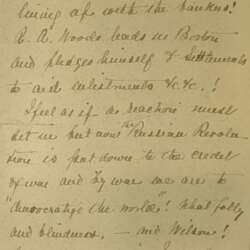 lining up with the bankers!
R. A. Woods leads in Boston
and pledges himself & Settlements
to aid enlistments &c &c!
I feel as if a reaction must
set in but now the Russian Revolu
tion is put down to the credit
of war and by war we are to
"democratize the world"! What folly
and blindness. — and Wilson!